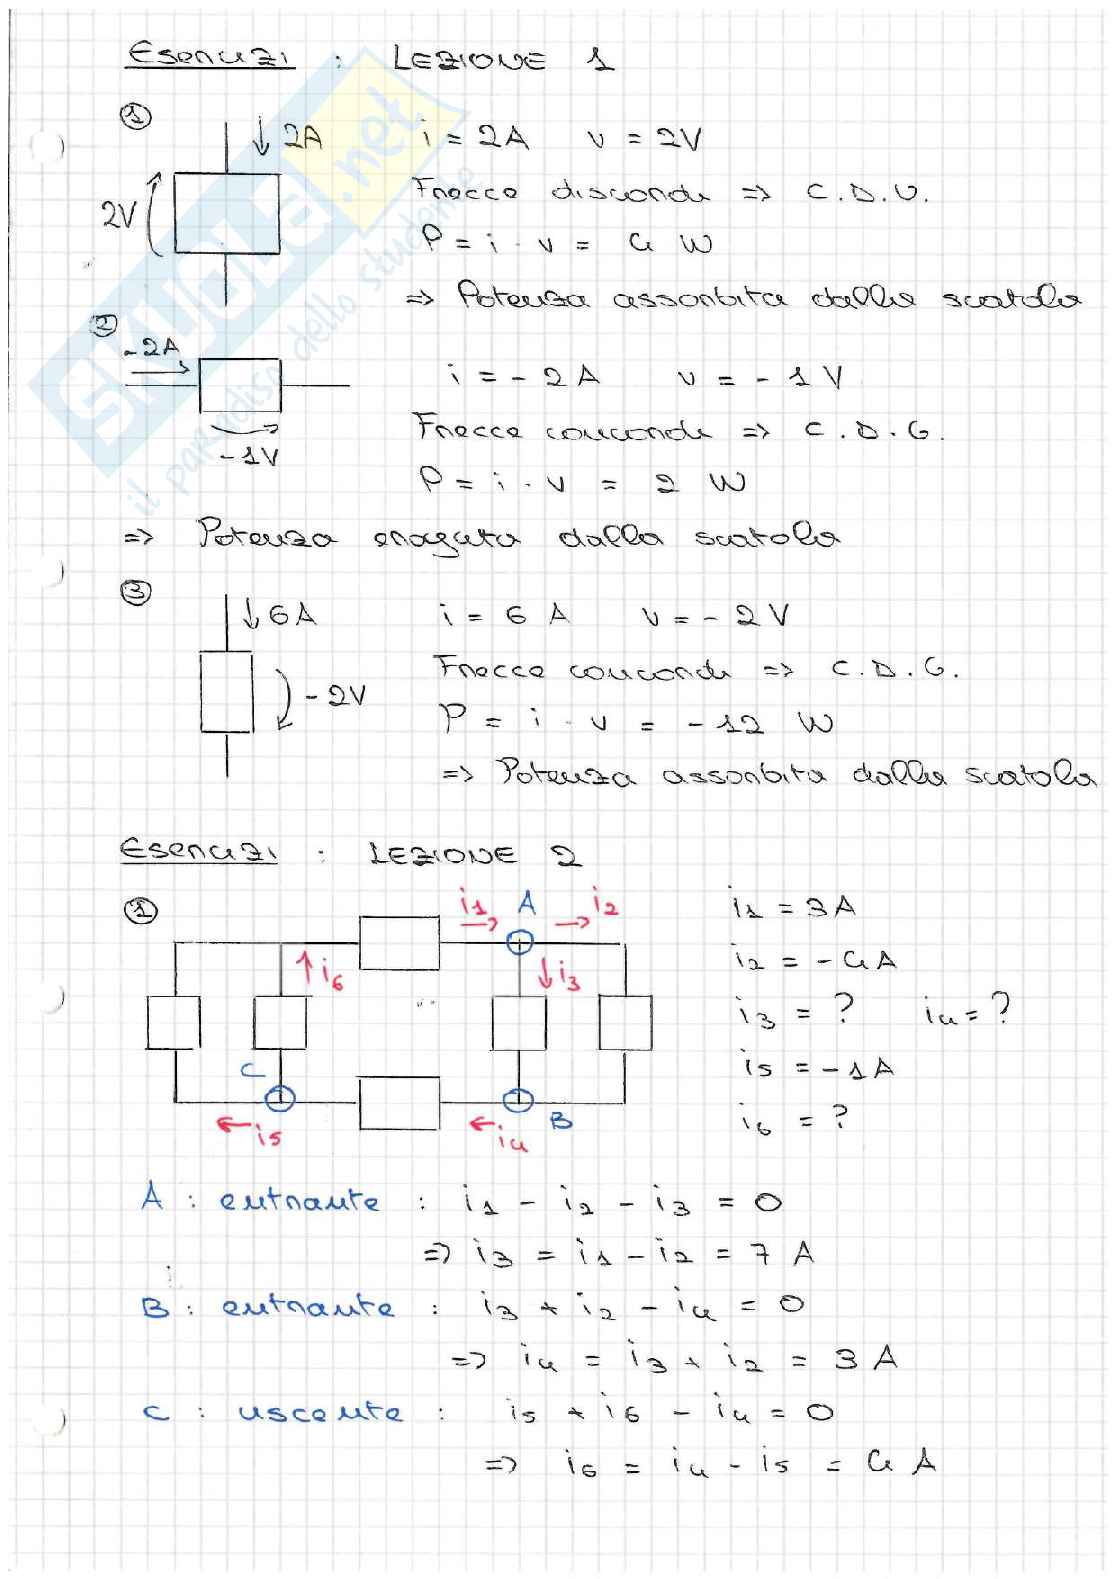 Esercizi : LEZIONE 1
①
2A
2V
i = 2A v = 2V
Frecce discordi => C.D.U.
P = i · v = 4 W
=> Potenza assorbita dalla scatola
②
-2A
-1V
i = -2A v = -1V
Frecce concordi => C.D.G.
P = i · v = 2 W
=> Potenza erogata dalla scatola
③
6A
-2V
i = 6 A v = -2V
Frecce concordi => C.D.G.
P = i · v = -12 W
=> Potenza assorbita dalla scatola
Esercizi : LEZIONE 2
①
i1 A i2
i6 i3
C
i5 i4 B
i1 = 3A
i2 = -4A
i3 = ? i4 = ?
i5 = -1A
i6 = ?
A : entrante : i1 - i2 - i3 = 0
=> i3 = i1 - i2 = 7 A
B : entrante : i3 + i2 - i4 = 0
=> i4 = i3 + i2 = 3 A
C : uscente : i5 + i6 - i4 = 0
=> i6 = i4 - i5 = 4 A
SKUOLA.net
il paradiso dello studente